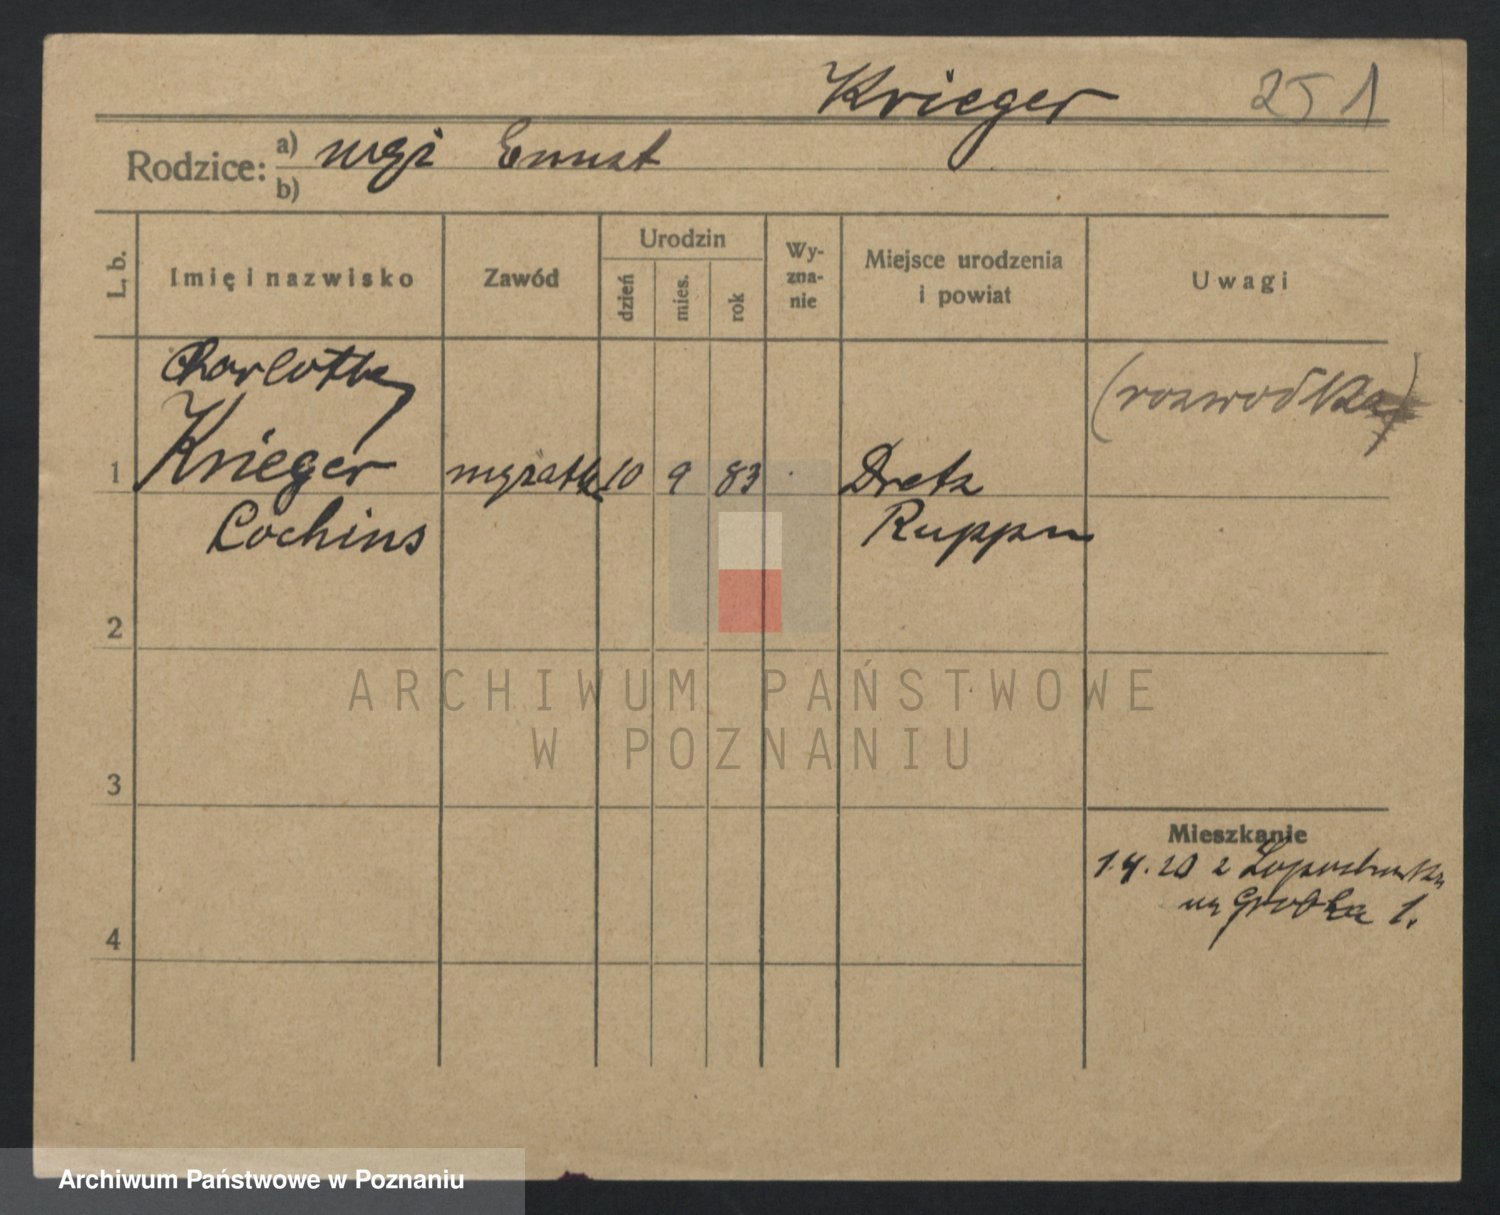 Krieger 251
Rodzice: a) mąż Ernst
b)
L. b.
Imię i nazwisko
Zawód
Urodzin
dzień
mies.
rok
Wy-
zna-
nie
Miejsce urodzenia
i powiat
Uwagi
Charlotte
(rozwódka)
1 Krieger mężatka 10 9 83 Dretz
Cochins Ruppin
2
ARCHIWUM PAŃSTWOWE
W POZNANIU
3
Mieszkanie
1.4.20 z
na Grobla 1.
4
Archiwum Państwowe w Poznaniu